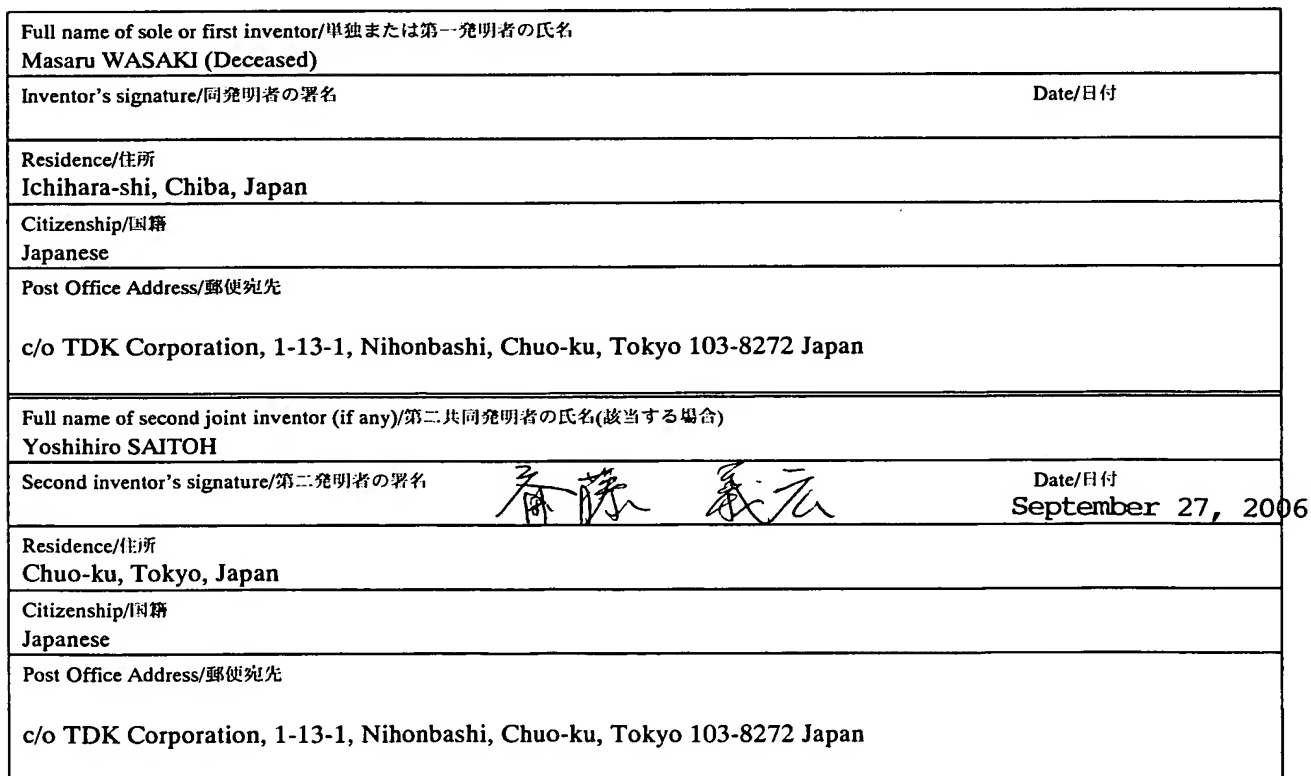 Full name of sole or first inventor/単独または第一発明者の氏名
Masaru WASAKI (Deceased)
Inventor's signature/同発明者の署名 Date/日付
Residence/住所
Ichihara-shi, Chiba, Japan
Citizenship/国籍
Japanese
Post Office Address/郵便宛先
c/o TDK Corporation, 1-13-1, Nihonbashi, Chuo-ku, Tokyo 103-8272 Japan
Full name of second joint inventor (if any)/第二共同発明者の氏名(該当する場合)
Yoshihiro SAITOH
Second inventor's signature/第二発明者の署名 斎藤 義広 Date/日付
September 27, 2006
Residence/住所
Chuo-ku, Tokyo, Japan
Citizenship/国籍
Japanese
Post Office Address/郵便宛先
c/o TDK Corporation, 1-13-1, Nihonbashi, Chuo-ku, Tokyo 103-8272 Japan